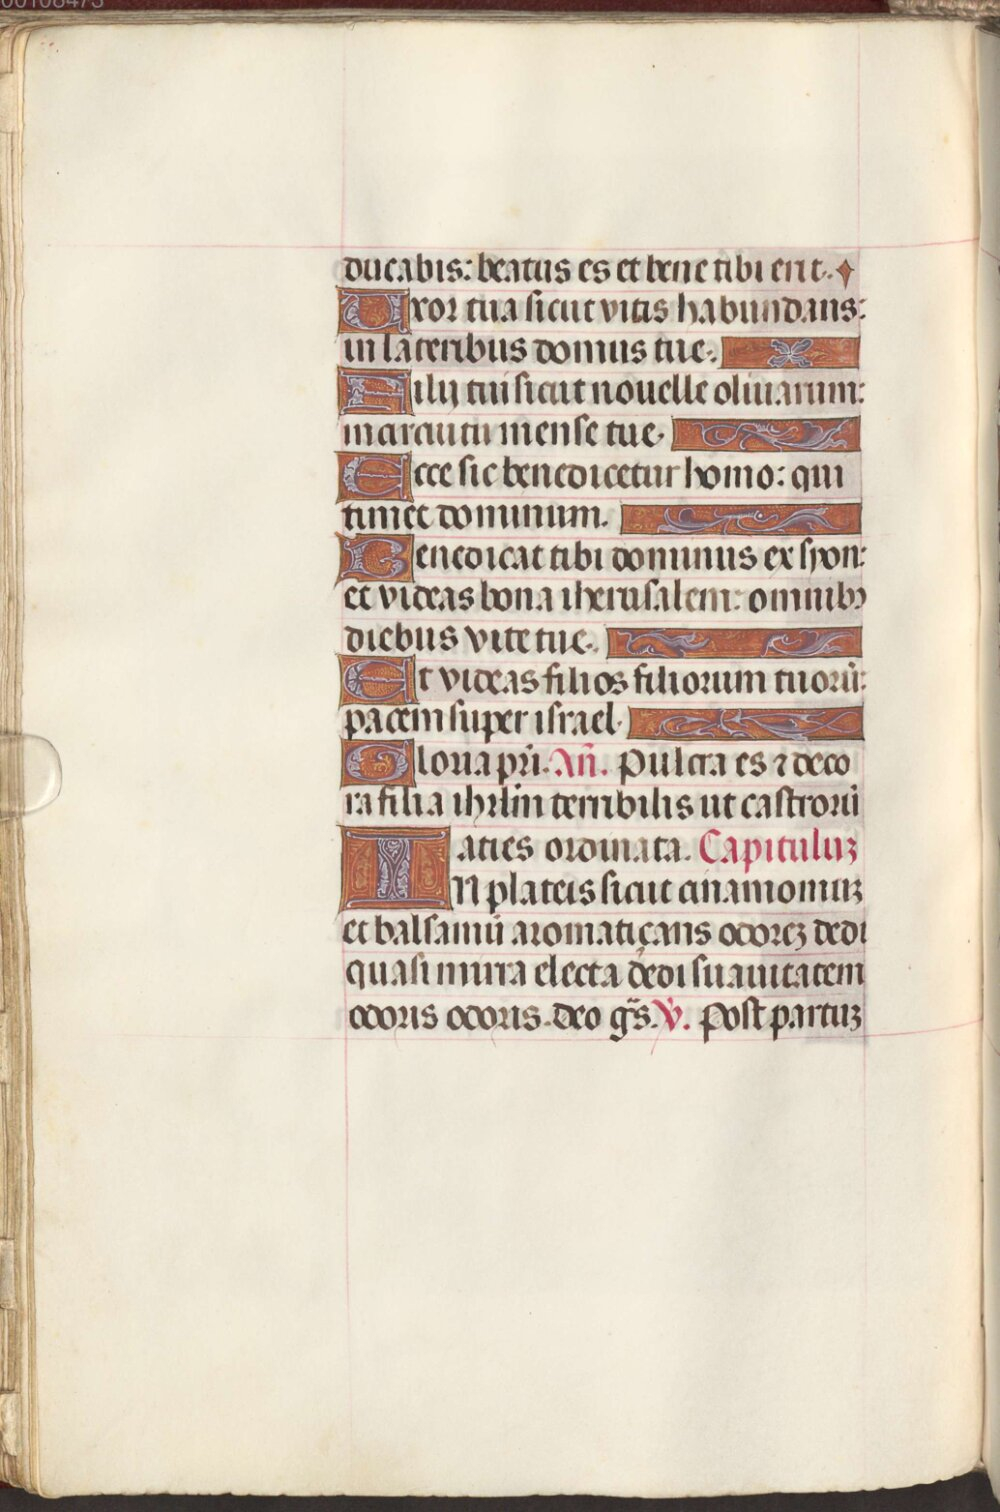 ducabis: beatus es et bene tibi erit.
Uxor tua sicut vitis habundans:
in lateribus domus tue.
Filij tui sicut nouelle oliuarum:
in circuitu mense tue.
Ecce sic benedicetur homo: qui
timet dominum.
Benedicat tibi dominus ex syon:
et videas bona iherusalem: omnibꝰ
diebus vite tue.
Et videas filios filiorum tuorū:
pacem super israel.
Gloria pr̄i. An̄. Pulcra es ⁊ deco
ra filia ihrlm̄ terribilis ut castrorū
acies ordinata. Capituluꝫ
IN plateis sicut cinamomuꝫ
et balsamū aromatiçans odoreꝫ dedi
quasi mirra electa dedi suauitatem
odoris odoris. deo gr̄s. ℣. Post partuꝫ